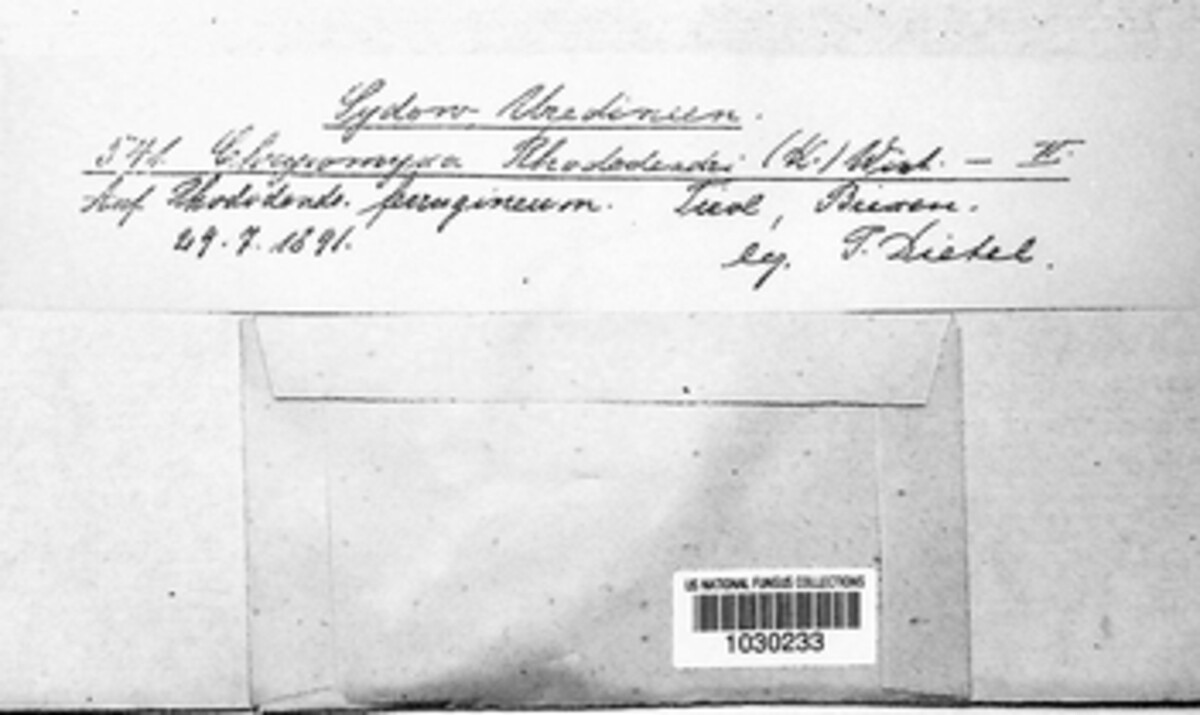 Sydow, Uredineen.
571. Chrysomyxa Rhododendri (DC.) Wint. — II.
Auf Rhododendr. ferrugineum. Tirol, Brixen.
29.7.1891.
leg. P. Dietel.
US NATIONAL FUNGUS COLLECTIONS
1030233